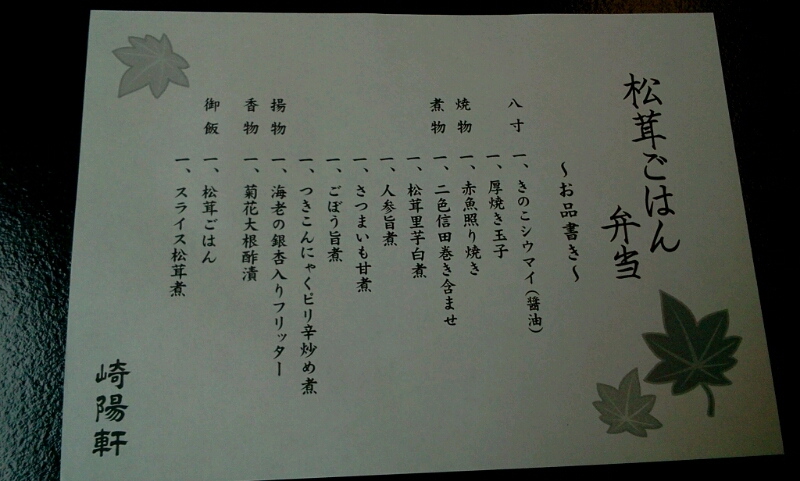 松茸ごはん
弁当
～お品書き～
八寸 一、きのこシウマイ（醤油）
一、厚焼き玉子
焼物 一、赤魚照り焼き
煮物 一、二色信田巻き含ませ
一、松茸里芋白煮
一、人参旨煮
一、さつまいも甘煮
一、ごぼう旨煮
一、つきこんにゃくピリ辛炒め煮
揚物 一、海老の銀杏入りフリッター
香物 一、菊花大根酢漬
御飯 一、松茸ごはん
一、スライス松茸煮
崎陽軒